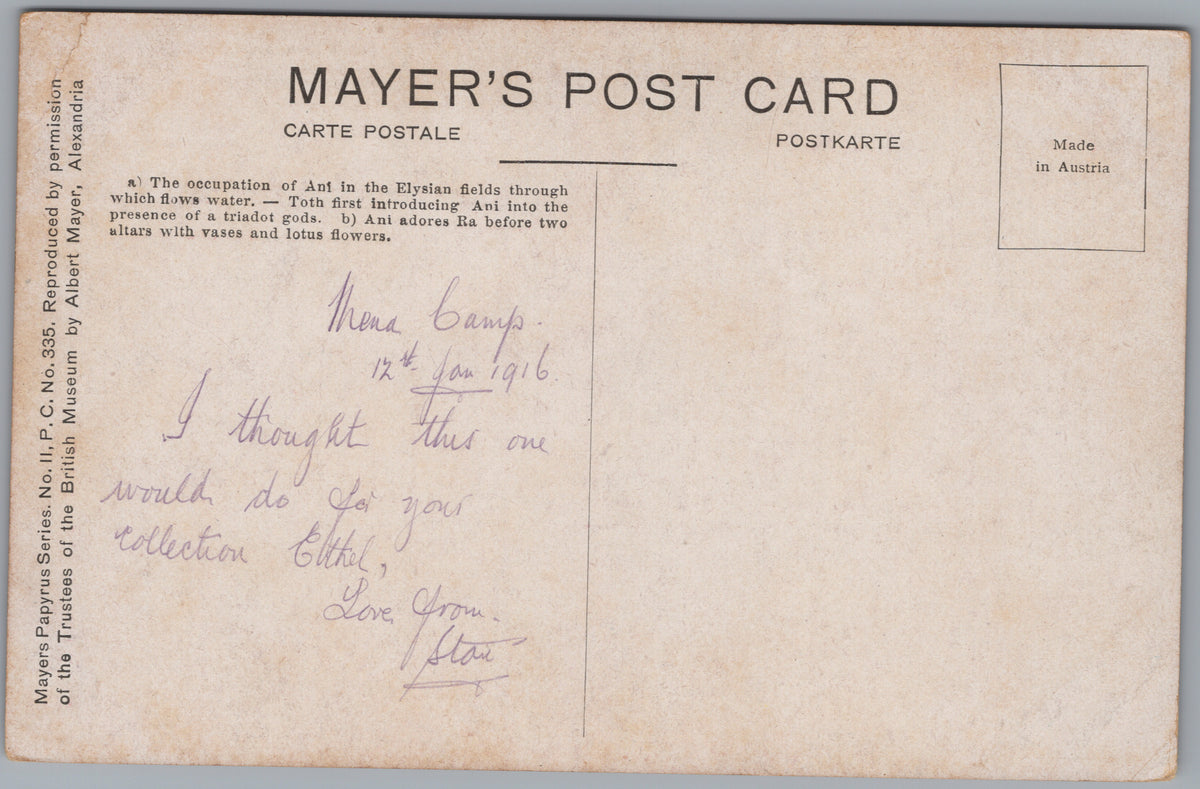 MAYER'S POST CARD
CARTE POSTALE
POSTKARTE
Made
in Austria
a) The occupation of Ani in the Elysian fields through
which flows water. — Toth first introducing Ani into the
presence of a triadot gods. b) Ani adores Ra before two
altars with vases and lotus flowers.
Mena Camp.
12st Jan 1916
I thought this one
would do for your
collection Ethel,
Love from.
Stan
Mayers Papyrus Series. No. II, P. C. No. 335. Reproduced by permission
of the Trustees of the British Museum by Albert Mayer, Alexandria